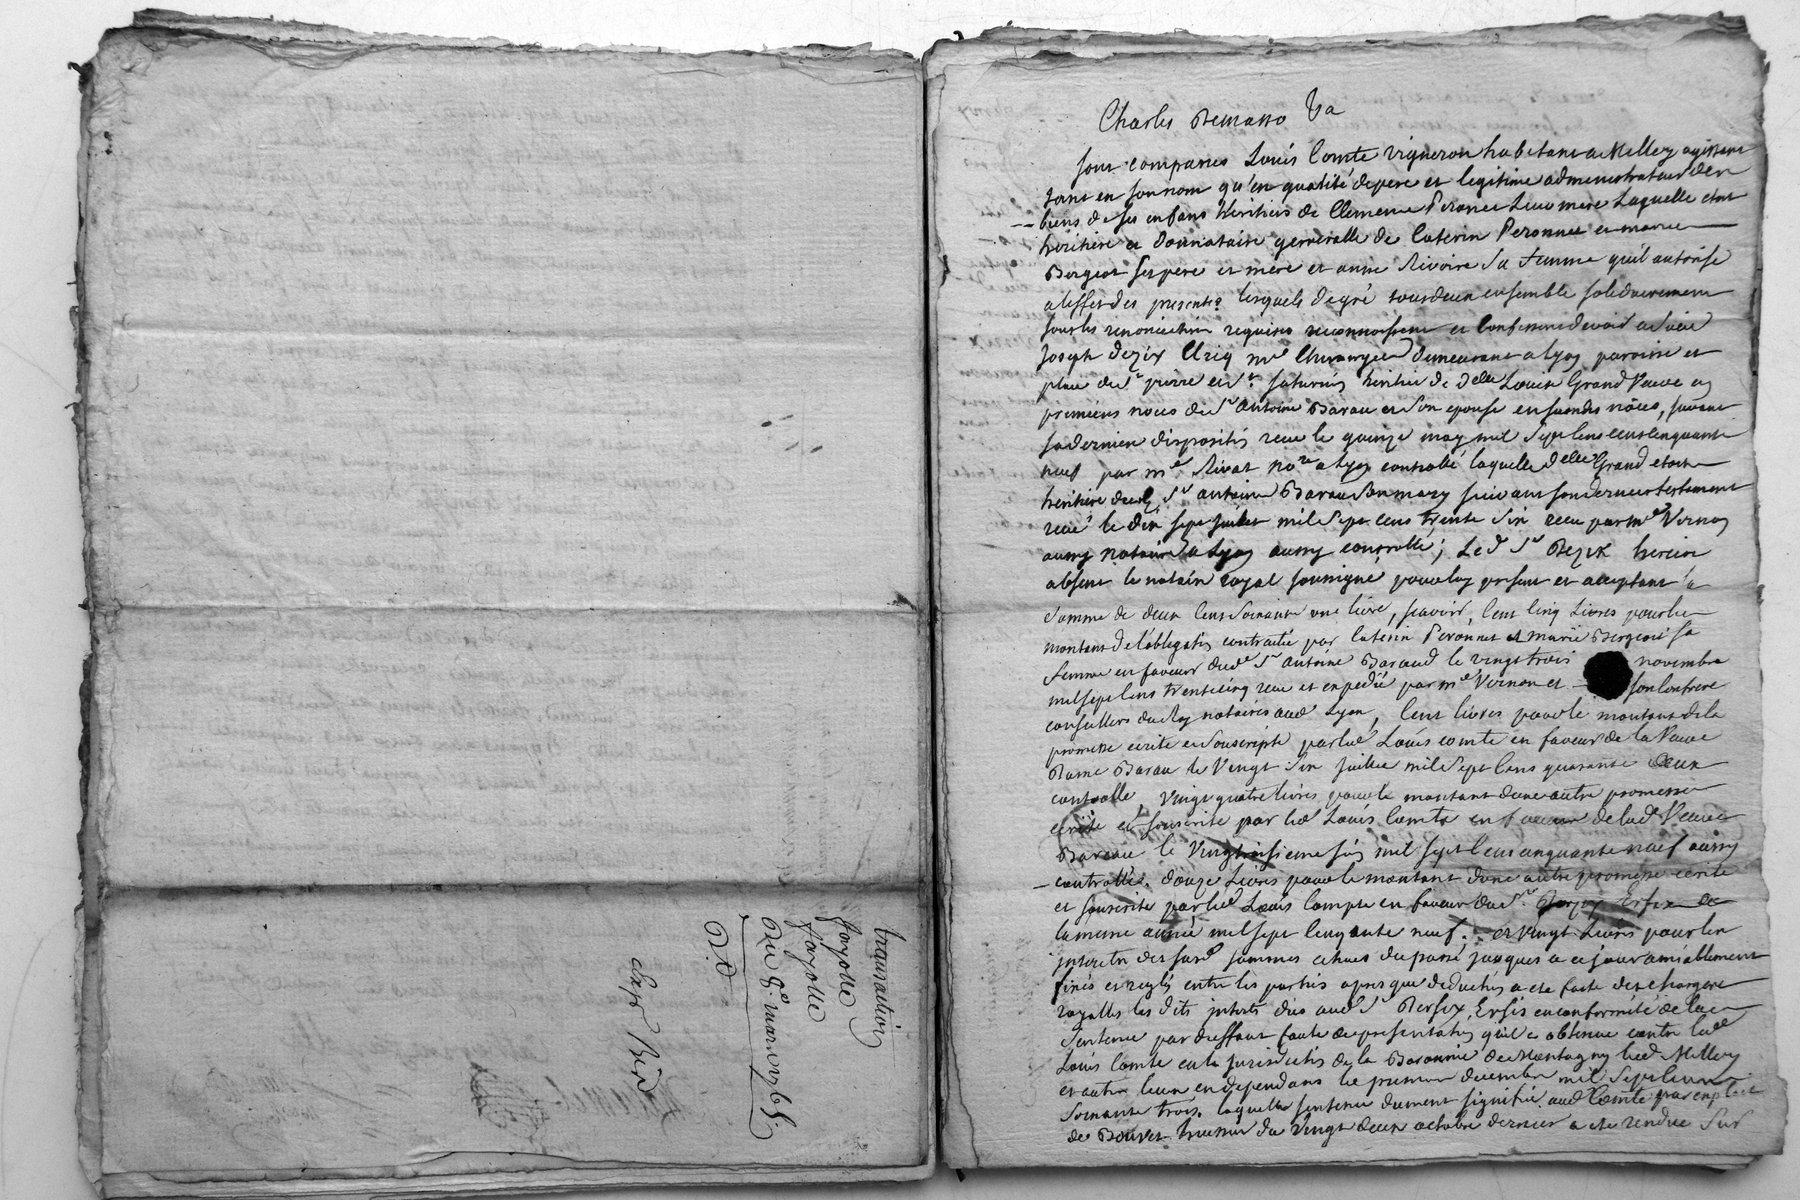 transaction
fayolle
fayolle
Du 8e mars 1765
D.D
Charles
Sont comparus Louïs Comte vigneron habitant a Millery agissant
tant en son nom qu'en qualité de pere et legitime administrateur des
biens de ses enfans heritiers de Clemence Peronet Leur mere Laquelle etoit
heritiere et donnataire generalle de Caterin Peronnet et marie
Bergeot ses pere et mere et anne Rivoire Sa femme qu'il autorise
a l'effet des presentes lesquels de gré tous deux ensemble solidairement
sous les renonciations requises reconnoissent et Confessent devoir a Sieur
Joseph me Chirurgien demeurant a Lyon paroisse et
place de St pierre et St Saturnin heritier de delle Louise Grand Veuve en
premieres noces de Sr antoine Barau et Son epouse en secondes nôces, suivant
sa derniere disposition receu le quinze may mil Sept Cens Cinquante
neuf par me Rivat nore a Lyon controllé laquelle delle Grand etoit
heritiere dud. Sr antoine Barau Son mary suivant son dernier testament
receu le dix sept juillet mil Sept Cens trente Six receu par me Vernon
aussy notaire a Lyon aussy controllé; Le d. Sr absent le notaire royal soussigné pour luy present et acceptant la
Somme de deux Cens Soixante une livre, sçavoir, Cent Cinq Livres pour le
montant de l'obligation contractée par Caterin Peronnet et marie Bergeot sa
femme en faveur dud. Sr antoine Baraud le vingt trois novembre
mil sept Cens trente cinq receu et expedié par me Vernon et son Confrere
conseillers du Roy notaires aud. Lyon, Cent livres pour le montant de la
promesse ecrite et Souscripte par led. Louïs Comte en faveur de la Veuve
Dame Barau le Vingt Six Juillet mil Sept Cens quarante deux
controllé Vingt quatre livres pour le montant d'une autre promesse
ecrite et Souscrite par led. Louis Comte en faveur de lad. Veuve
Bareau le Vingt troisieme juin mil sept Cens cinquante neuf aussy
controllé. douze Livres pour le montant d'une autre promesse ecrite
et souscrite par led. Louis Compte en faveur dud. Sr de
la meme année mil sept Cinquante neuf. et vingt Livres pour les
interets des susd. sommes echues du passé jusques a ce jour amiablement
fixés et reglés entre les parties apres que deduction a ete faite des charges
royalles les dits interets dûs aud. Sr en conformité de la
Sentence par deffaut faute de presentation qu'il a obtenue contre led.
Louïs Comte en la jurisdiction de la Baronnie de Montagny led. Millery
et autres lieux en dependans le premier decembre mil Sept Cens
Soixante trois. laquelle sentence duement signifiée aud. Comte par exploit
de Bouvet huissier du Vingt deux octobre dernier a ete rendue Sur